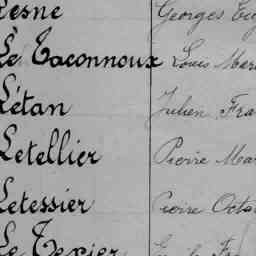 Lesne Georges Eug
Le Taconnoux Louis Mar
Létan Julien Fra
Letellier Pierre Mar
Letessier Pierre Octa
Le Texier Fra